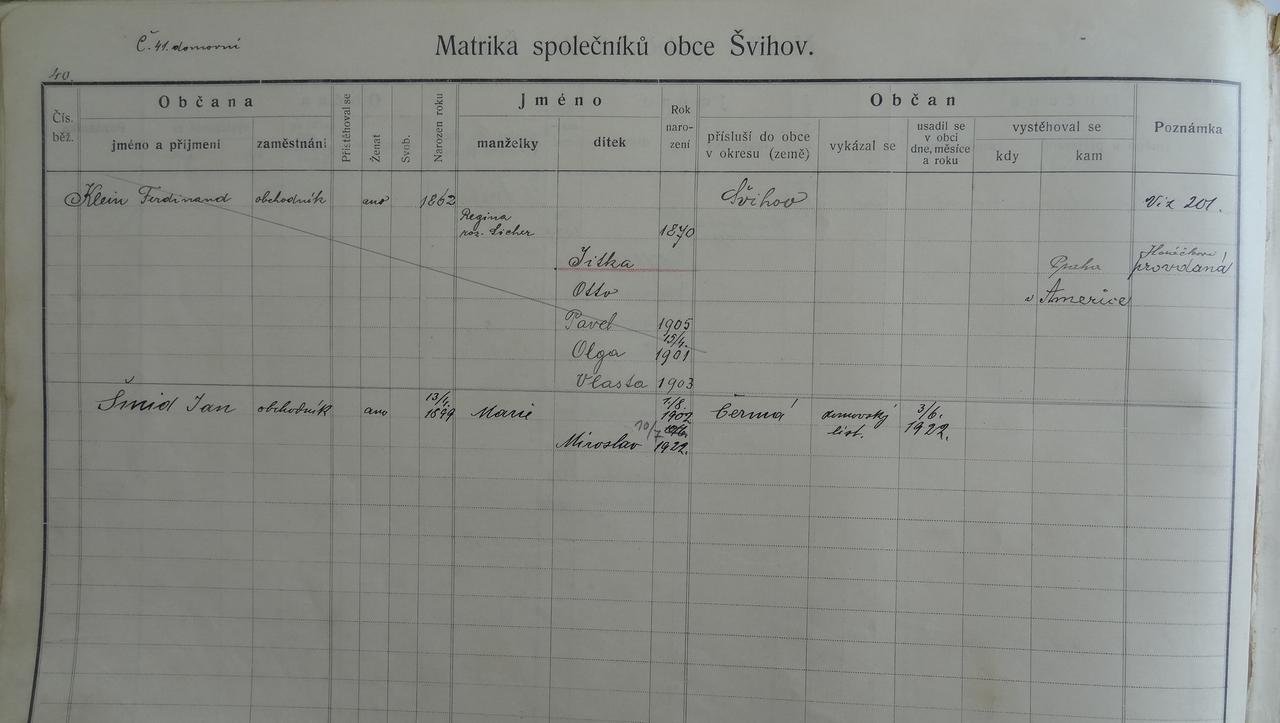 Č. 41. domovní
Matrika společníků obce Švihov.
40.
Čís. běž.
Občana
jméno a příjmení
zaměstnání
Přistěhoval se
Ženat
Svob.
Narozen roku
Jméno
manželky
dítek
Rok naro- zení
Občan
přísluší do obce v okresu (země)
vykázal se
usadil se v obci dne, měsíce a roku
vystěhoval se
kdy
kam
Poznámka
Klein Ferdinand obchodník ano 1862 Švihov Viz 201.
Regina
roz. 1870
Jitka Praha provdaná
Otto v Americe
Pavel 1905
Olga 15/4. 1901
Vlasta 1903
Šmid Jan obchodník ano 13/4. 1899 Marie 1/8. 1902 Černá domovský list. 3/6. 1922.
Miroslav 10/7 1922.